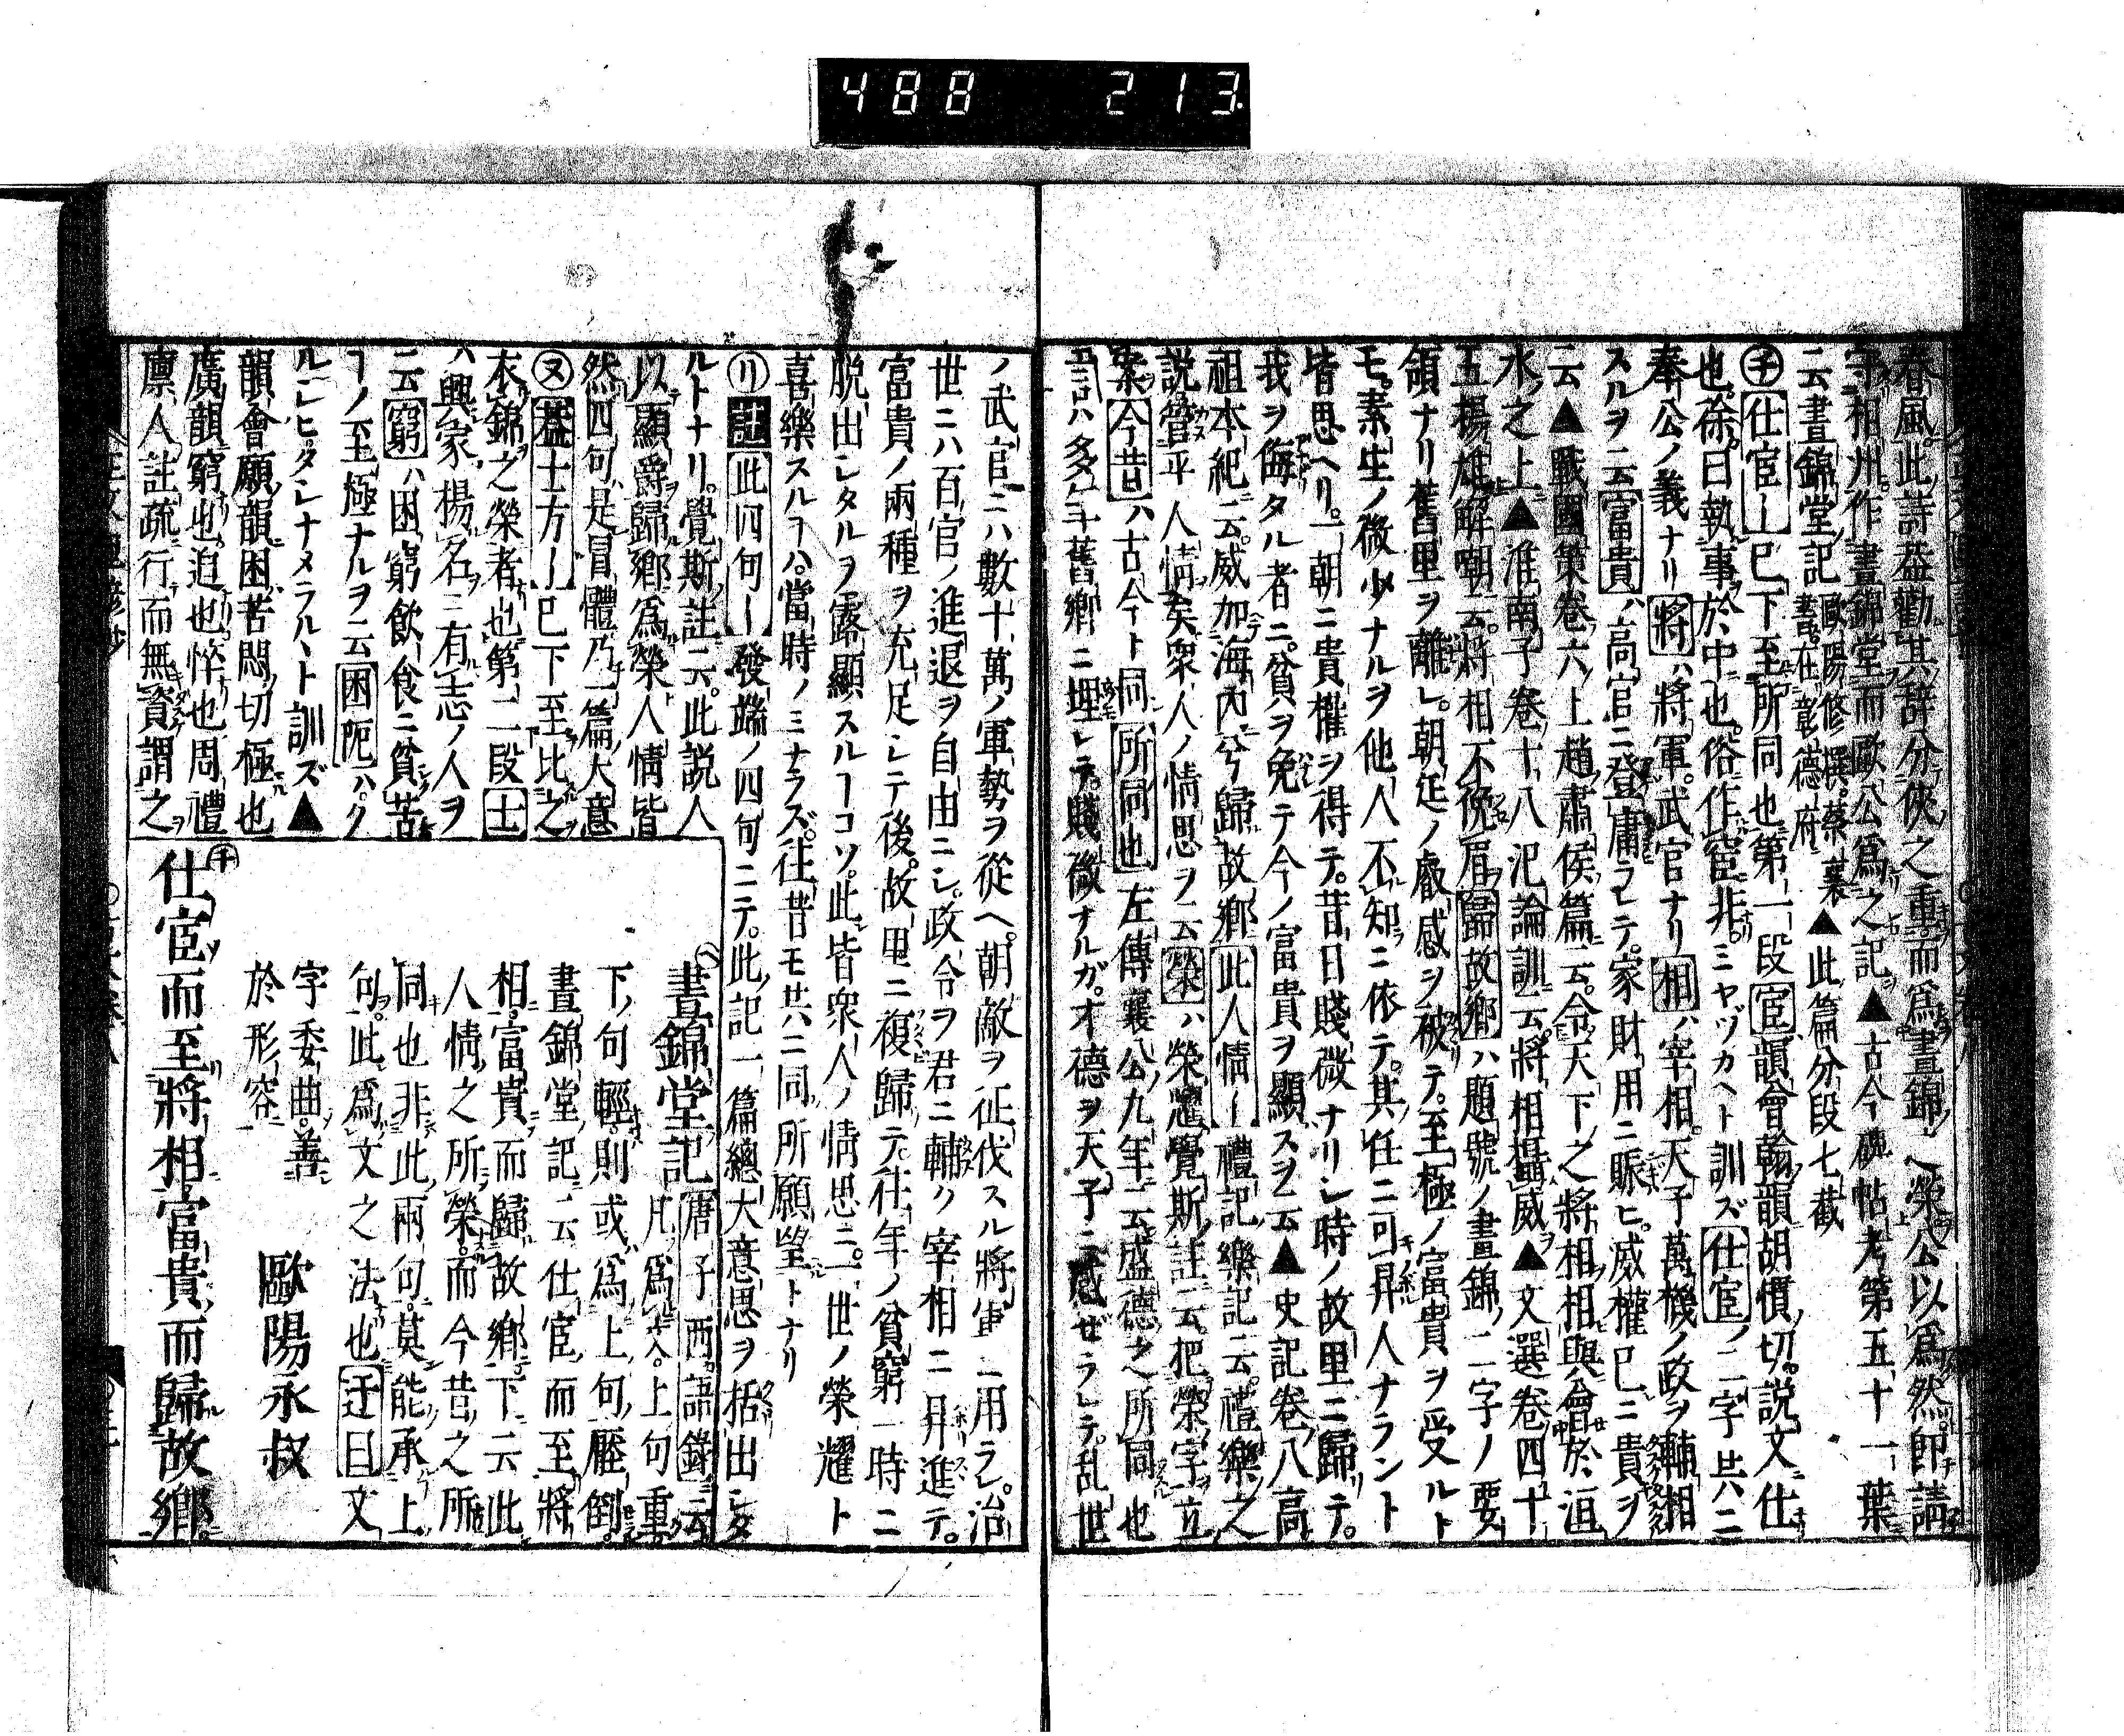 488 213
春風此詩蓋勸其辭分俠之重而爲晝錦之榮公以爲然即請
守相州作晝錦堂而歐公爲之記▲古今碑帖考第五十一葉
ニ云晝錦堂記歐陽修撰蔡襄書在彰德府▲此篇分段七截
㋠仕宦ー巳下至所同也第一段宦韻會翰韻胡慣切說文仕
也徐曰執事於中也俗作宦非ミヤヅカヘト訓ズ仕宦ノ二字共ニ
奉公ノ義ナリ將ハ將軍武官ナリ相ハ宰相天子萬機ノ政ヲ輔相
スルヲ云富貴ハ高官ニ登庸シテ家財用ニ賑ヒ威權巳ニ貴ヲ
云▲戰國策卷六上趙肅侯篇云令天下之將相相與會於洹
水之上▲淮南子卷十八氾論訓云將相攝威▲文選卷四十
五楊雄解嘲云將相不俛眉歸故鄉ハ題號ノ晝錦ノ二字ノ要
領ナリ舊里ヲ離レ朝廷ノ叡感ヲ被テ至極ノ富貴ヲ受ルト
モ素生ノ微少ナルヲ他人不知ニ依テ其任ニ可昇人ナラント
皆思ヘリ一朝ニ貴權ヲ得テ昔日賤微ナリシ時ノ故里ニ歸テ
我ヲ侮タル者ニ貧ヲ免テ今ノ富貴ヲ顯スヲ云▲史記卷八高
祖本紀ニ云威加海內兮歸故鄉此人情ー禮記樂記ニ云禮樂之
說管乎人情矣衆人ノ情思ヲ云榮ハ榮耀覺斯註云把榮字立
案今昔ハ古今ト同所同也左傳襄公九年云盛德之所同也
言ハ多年舊鄉ニ埋レテ賤微ナルガ才德ヲ天子ニ感ゼラレテ乱世
ノ武官ニハ數十萬ノ軍勢ヲ從ヘ朝敵ヲ征伐スル將軍ニ用ラレ治
世ニハ百官ノ進退ヲ自由ニシ政令ヲ君ニ輔ク宰相ニ昇進テ
富貴ノ兩種ヲ充足シテ後故里ニ複歸テ往年ノ貧窮一時ニ
脫出シタルヲ露顯スルーコソ此皆衆人ノ情思ニ一世ノ榮耀ト
喜樂スルーハ當時ノミナラズ往昔モ共ニ同所願望トナリ
㋷註此四句ー發端ノ四句ニテ此記一篇總大意思ヲ括出シタ
ルトナリ覺斯註云此說人
以顯爵歸鄉爲榮人情皆
然四句是冒體乃一篇大意
㋦蓋士方ー巳下至比之
衣錦之榮者也第二段士
ハ興家揚名ニ有志ノ人ヲ
云窮ハ困窮飲食ニ貧苦
ーノ至極ナルヲ云困阨ハク
ルシヒタシナメラルヽト訓ズ▲
韻會願韻困苦悶切極也
廣韻窮也迫也悴也周禮
廩人註疏行而無資謂之
晝錦堂記唐子西語錄云
凡爲文上句重
下句輕則或爲上句壓倒
晝錦堂記云仕宦而至將
相富貴而歸故鄉下云此
人情之所榮而今昔之所
同也非此兩句莫能承上
句此爲文之法也迂曰文
字委曲善
於形容
歐陽永叔
㋠仕宦而至將相富貴而歸故鄉